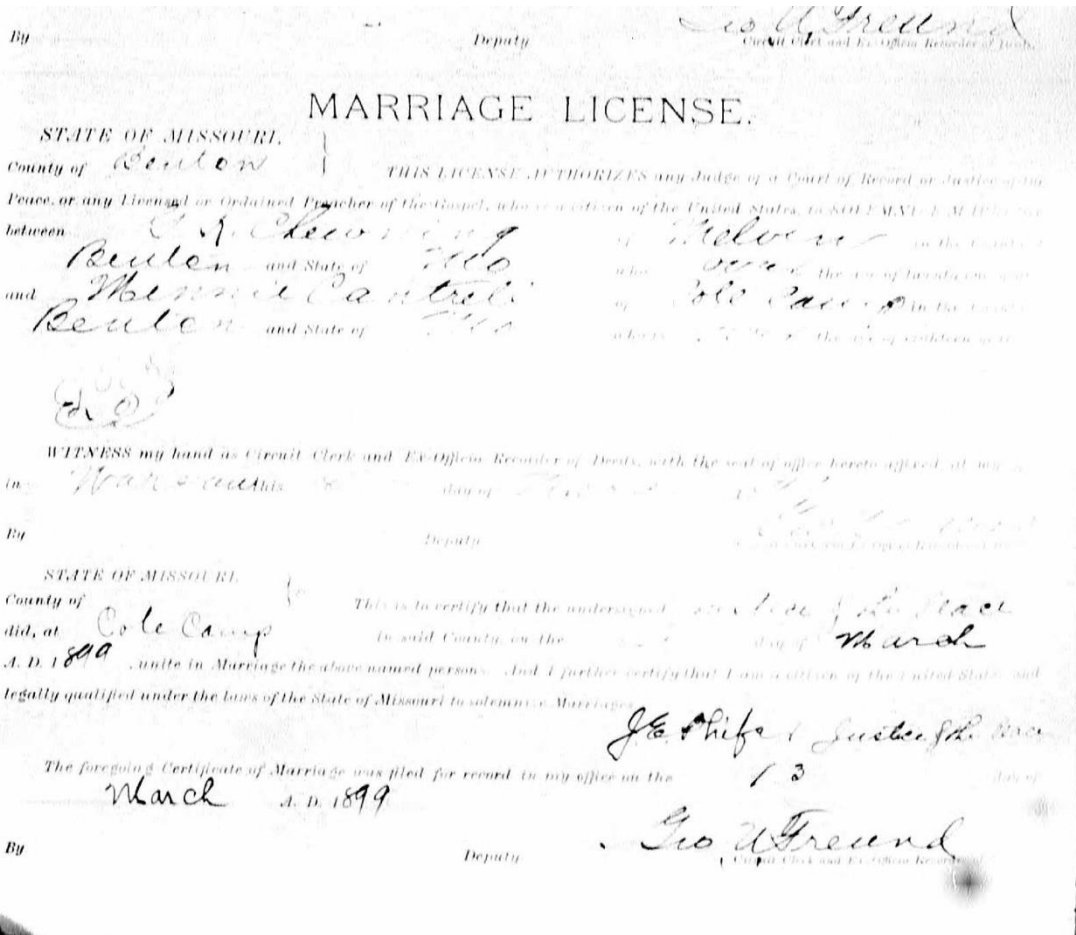 Geo U Freund
By Deputy Circuit Clerk and Ex-Officio Recorder of Deeds.
MARRIAGE LICENSE.
STATE OF MISSOURI,
County of Benton THIS LICENSE AUTHORIZES any Judge of a Court of Record or Justice of the
Peace, or any Licensed or Ordained Preacher of the Gospel, who is a citizen of the United States, to SOLEMNIZE MARRIAGE
between Chewning of Melvin in the County of
Benton and State of Mo who over the age of twenty-one years
and Minnie Cantrell of Cole Camp in the County
Benton and State of Mo who is the age of eighteen years
WITNESS my hand as Circuit Clerk and Ex-Officio Recorder of Deeds, with the seal of office hereto affixed, at my
in Warsaw this day of
By Deputy
STATE OF MISSOURI,
County of This is to certify that the undersigned Justice of the Peace
did, at Cole Camp in said County, on the day of March
A. D. 1899 , unite in Marriage the above named persons. And I further certify that I am a citizen of the United States and
legally qualified under the laws of the State of Missouri to solemnize Marriages.
J E Phifer Justice of the Peace
The foregoing Certificate of Marriage was filed for record in my office on the 13 day of
March A. D. 1899
By Deputy Geo U Freund
Circuit Clerk and Ex-Officio Recorder of